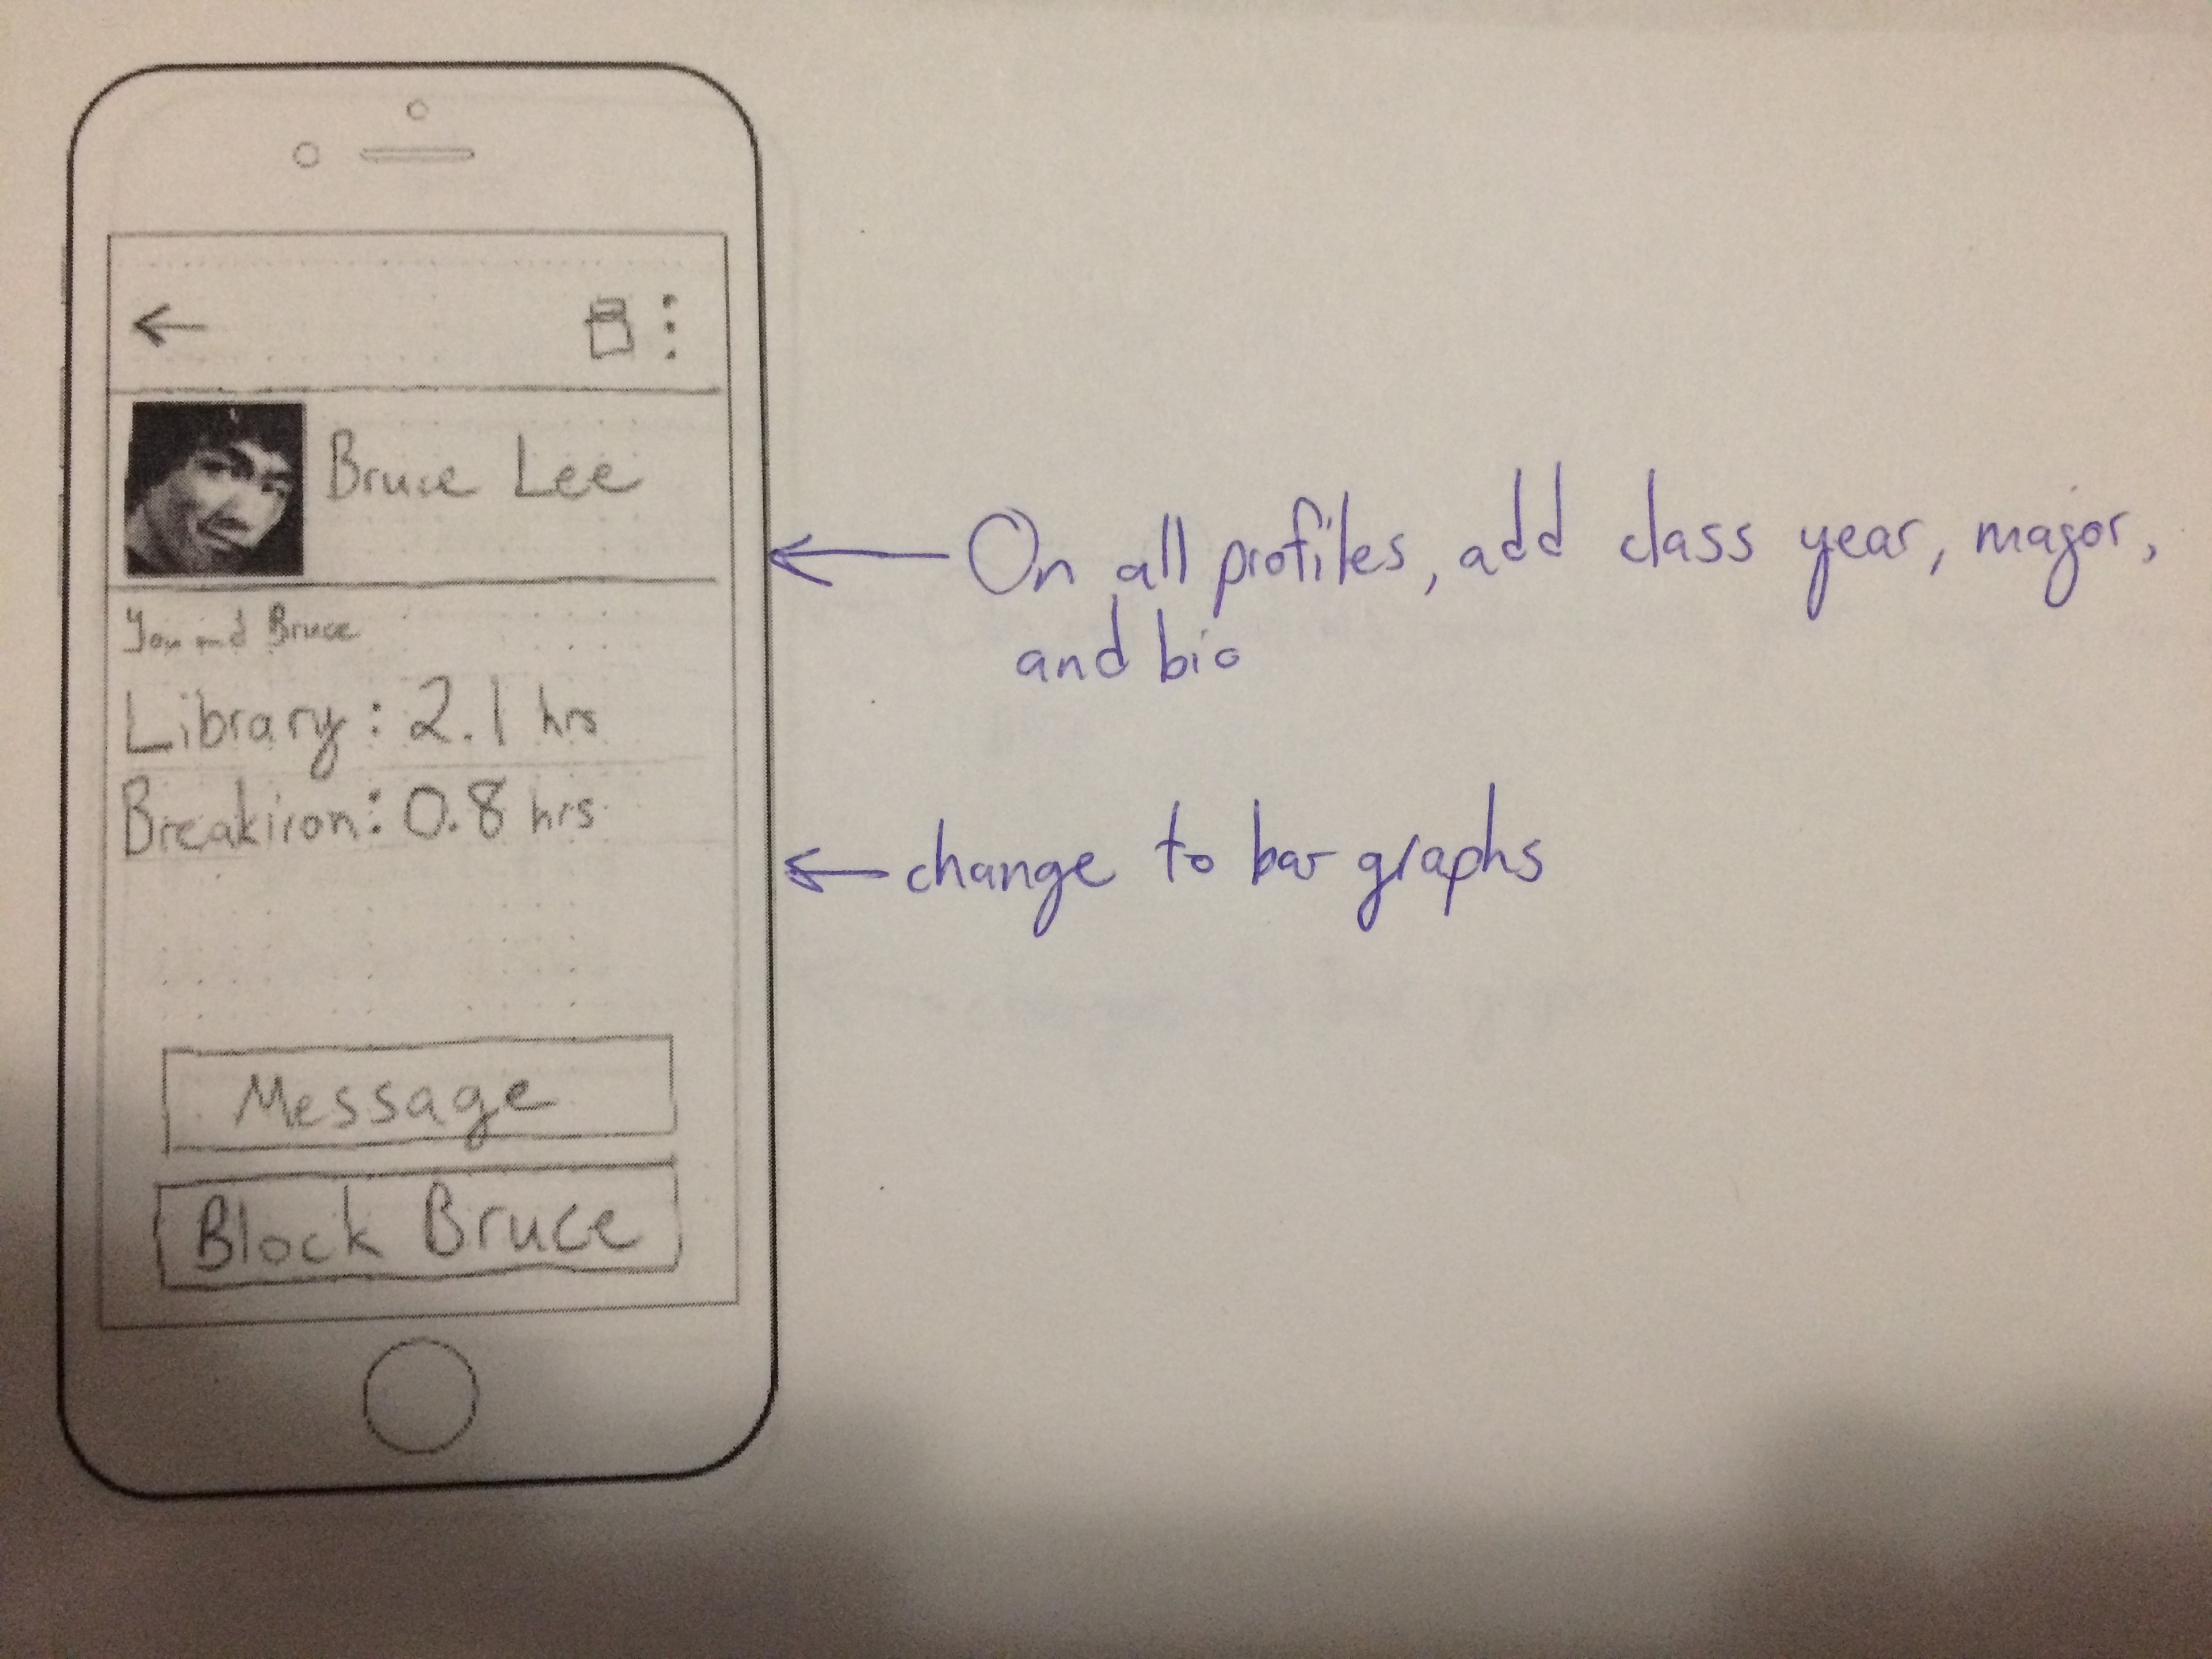 Bruce Lee
You and Bruce
Library: 2.1 hrs
Breakiron: 0.8 hrs
Message
Block Bruce
On all profiles, add class year, major,
and bio
change to bar graphs